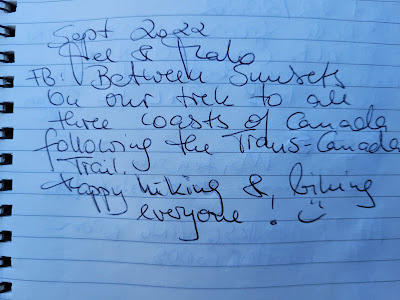 Sept 2022
& Malo
FB: Between Sunsets
On our trek to all
three coasts of Canada
following the Trans-Canada
Trail.
Happy hiking & biking
everyone!